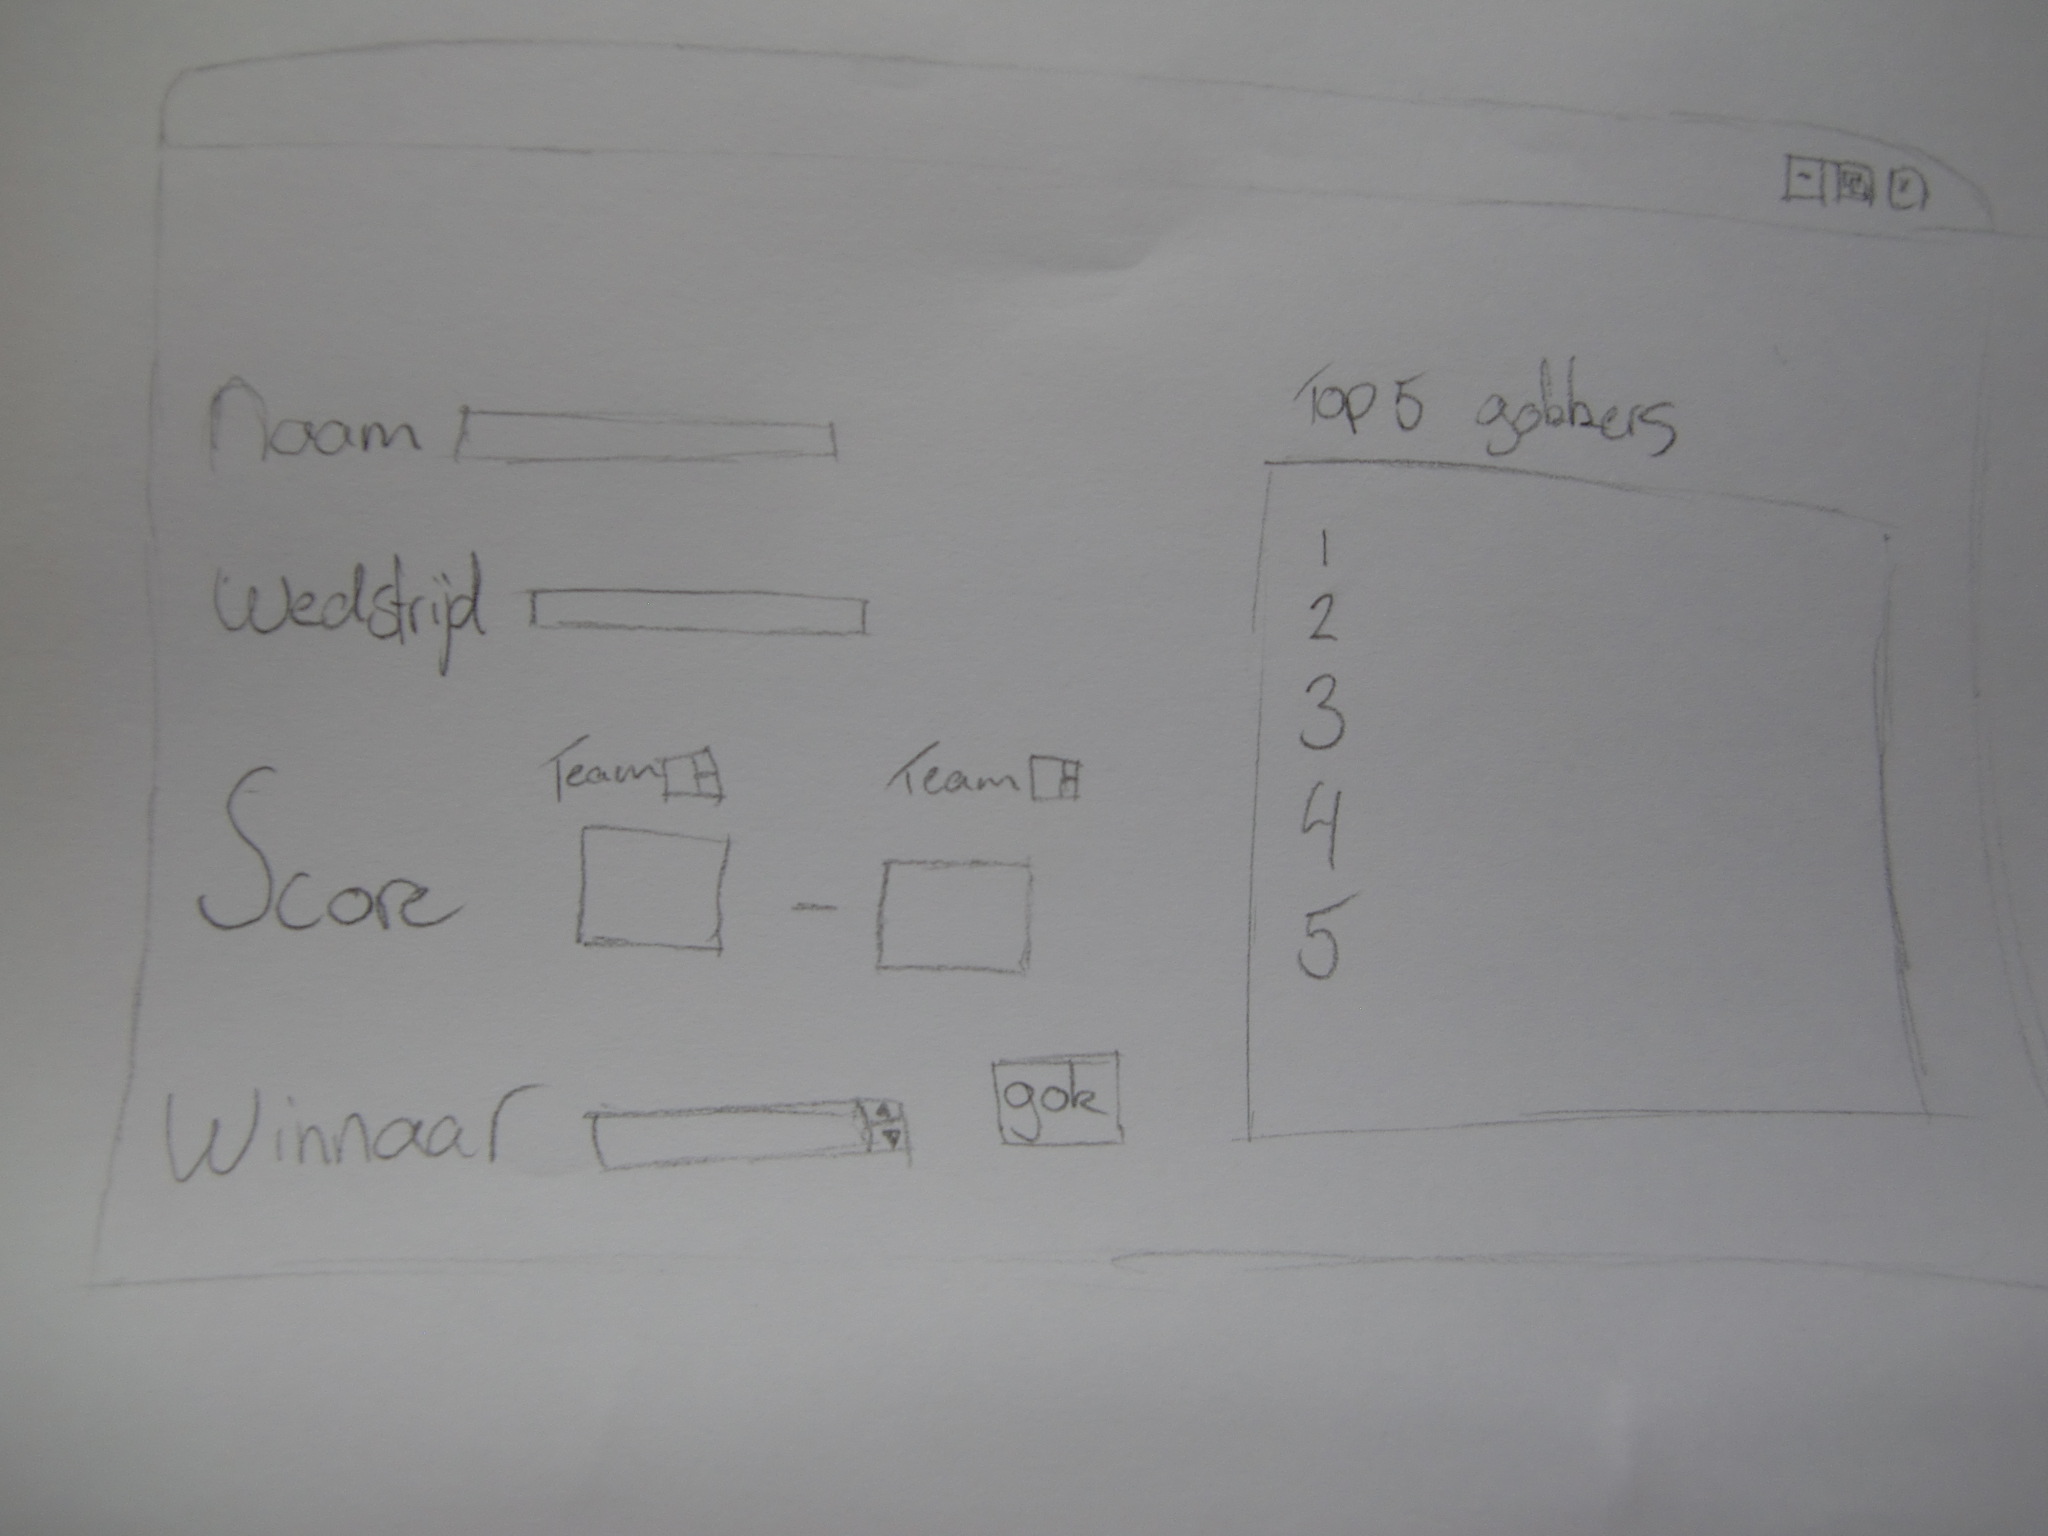 Naam
Wedstrijd
Score
Team
Team
-
Winnaar
gok
Top 5 gokkers
1
2
3
4
5